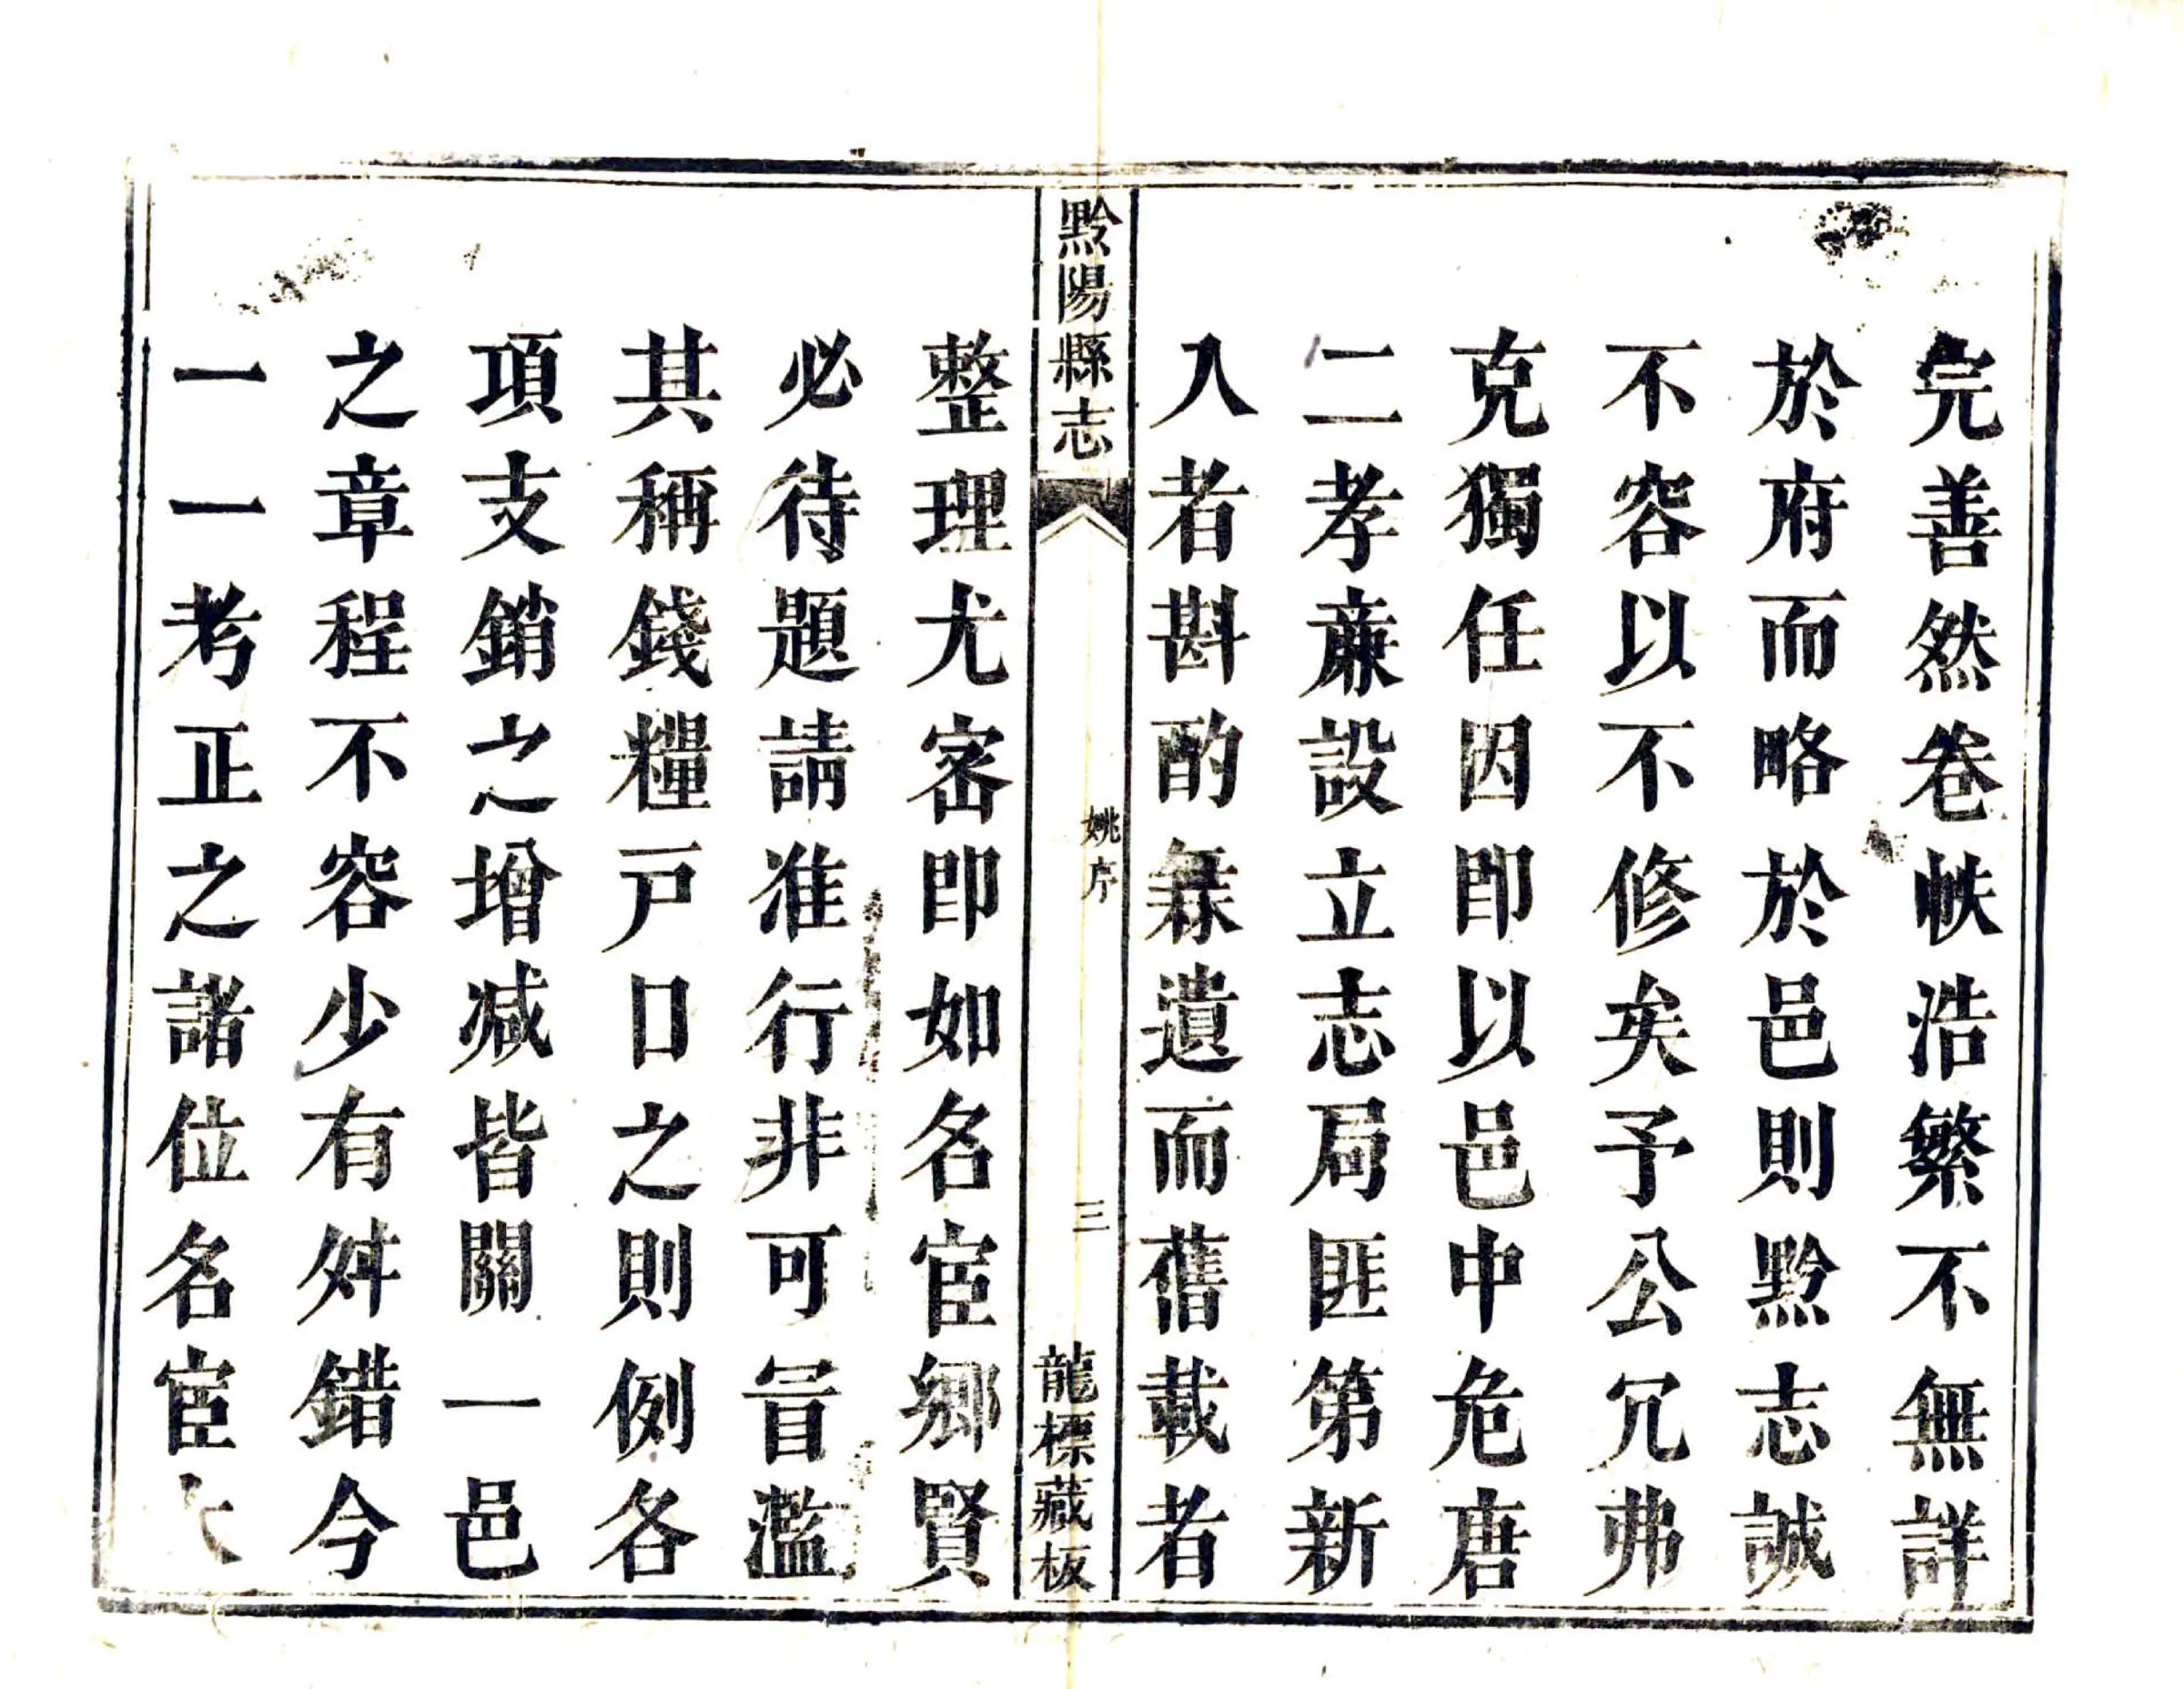 完善然卷帙浩繁不無詳
於府而略於邑則黔志誠
不容以不修矣予公冗弗
克獨任因即以邑中危唐
二孝亷設立志局匪第新
入者斟酌無遺而舊載者
黔陽縣志
姚序
三
龍標藏板
整理尤密即如名宦鄉賢
必待題請准行非可冒濫
其稱錢糧戸口之則例各
項支銷之增减皆關一邑
之章程不容少有舛錯今
一一考正之諸位名宦大